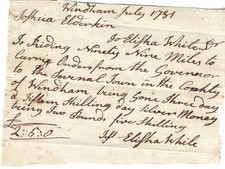 Windham July 1781
Joshua Elderkin
To Elisha White Dr
To Riding Ninety Nine Miles to
Carrie Orders from the Governor
to the Several Town in the County
of Windham being Gone Three Days
a Fifteen Shilling day Silver Money
being Two Pounds five Shilling
£2:5:0
Elisha White